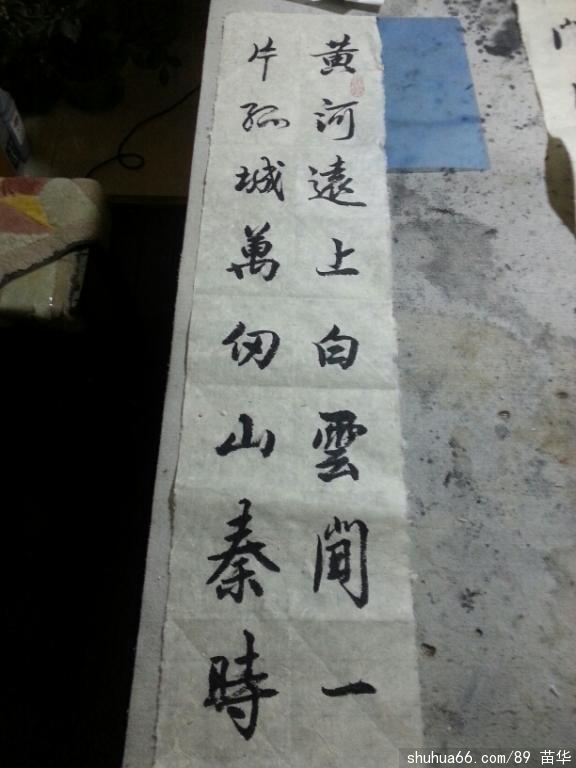 黄河遠上白雲間一
片孤城萬仞山秦時
shuhua66.com/89 苗华